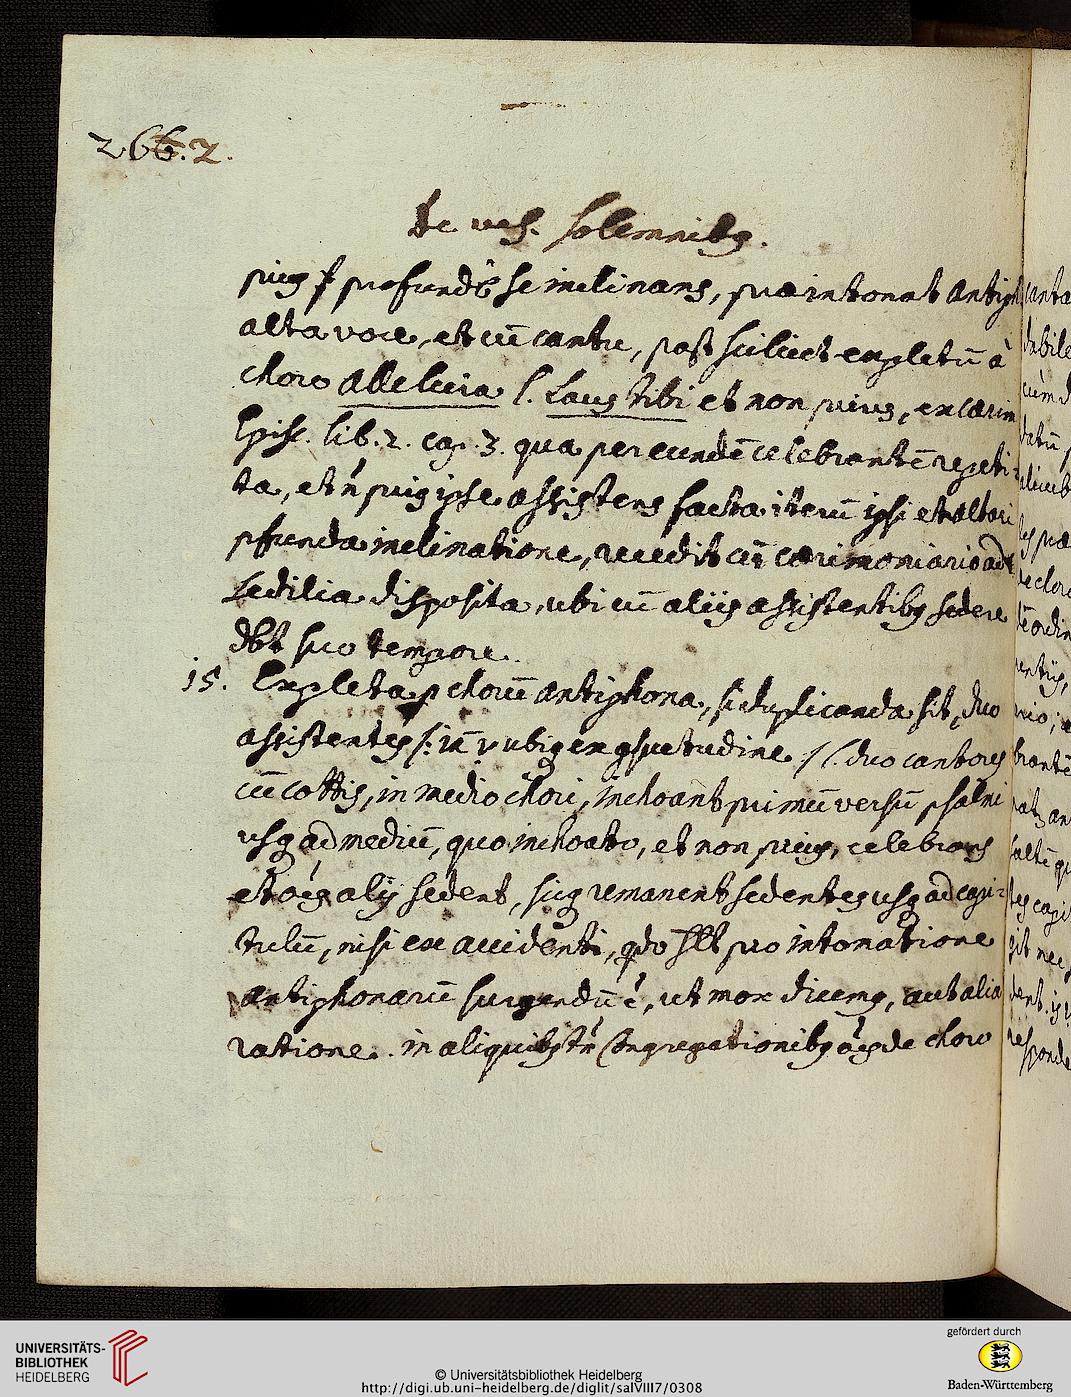 266.2.
De vesp. solemnibq.
priq profundè se inclinans, præintonat antiph
alta voce, et cū cantu, post scilicet expletū à
choro Alleluia l. Laus tibi et non prius, ex Cærim
Episc. lib. 2. cap. 3. qua per eundē celebrantē repeti-
ta, et priq ipse assistens facta iterū ipsi et altari
pfunda inclinatione, recedit cū cærimoniario ad
sedilia disposita, ubi cū aliis assistentibq sedere
dbt suo tempore.
15. Expleta p chorū antiphona, si duplicanda sit, duo
assistentes ubiq ex gsuetudine l. duo cantores
cū cottis, in medio chori, inchoant primū versū psalmi
usq ad mediū, quo inchoato, et non prius, celebrans
et oēs alij sedent, sicq remanent sedentes usq ad capi-
tulū, nisi ex accidenti, qdo pro intonatione
antiphonarū surgendū é, ut mox dicemq, aut alia
ratione. in aliquibq tn Congregationibq oēs de choro
UNIVERSITÄTS-
BIBLIOTHEK
HEIDELBERG
© Universitätsbibliothek Heidelberg
http://digi.ub.uni-heidelberg.de/diglit/salVIII7/0308
gefördert durch
Baden-Württemberg